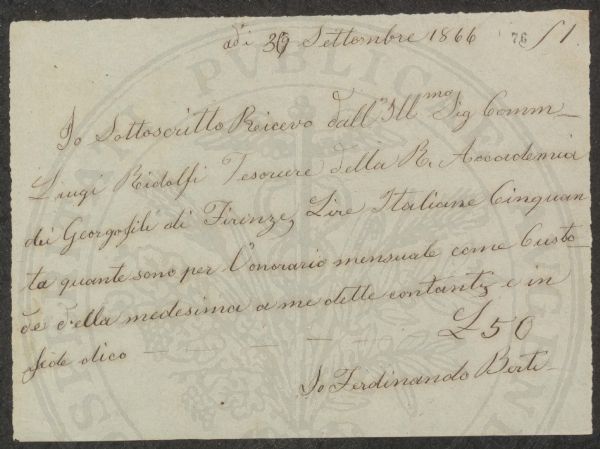 adi 30 Settembre 1866 76 51
Io Sottoscritto Ricevo dall' Ill.mo Sig Comm_
Luigi Ridolfi Tesorire della R. Accademia
dei Georgofili di Firenze, Lire Italiane Cinquan
ta quante sono per l'onorario mensuale come Custo_
de della medesima a me dette contanti, e in
fede dico — — — — £50
Io Ferdinando Berti_